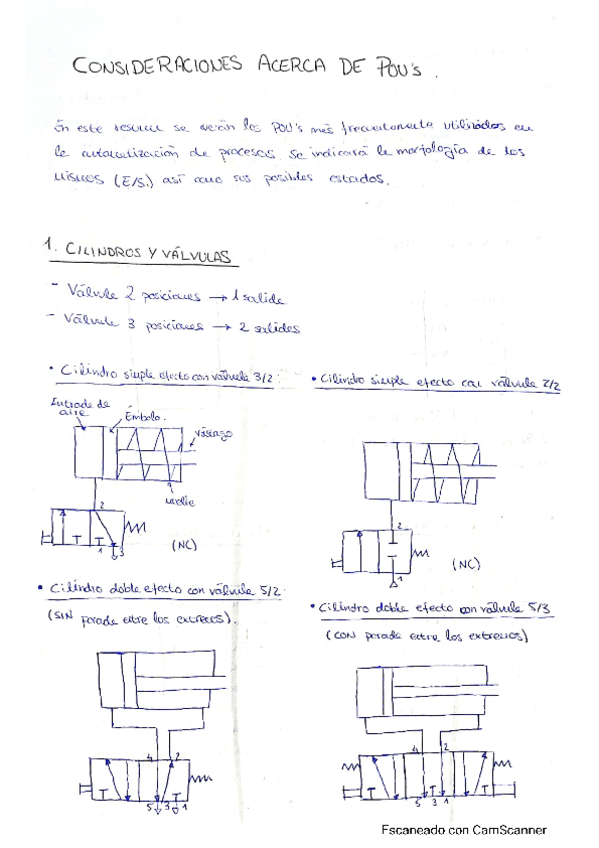 CONSIDERACIONES ACERCA DE POU's.
En este resumen se verán los POU's más frecuentemente utilizados en
la automatización de procesos. Se indicará la morfología de los
mismos (E/S.) así como sus posibles estados.
1. CILINDROS Y VÁLVULAS
- Válvula 2 posiciones → 1 salida
- Válvula 3 posiciones → 2 salidas
• Cilindro simple efecto con válvula 3/2:
• Cilindro simple efecto con válvula 2/2
Entrada de
aire
Émbolo.
Vástago
muelle
2
T
T
1
3
(NC)
2
T
1
(NC)
• Cilindro doble efecto con válvula 5/2
(SIN parada entre los extremos).
• Cilindro doble efecto con válvula 5/3
(CON parada entre los extremos)
4 2
T
5 3 1
4 2
T
T
5 3 1
Escaneado con CamScanner